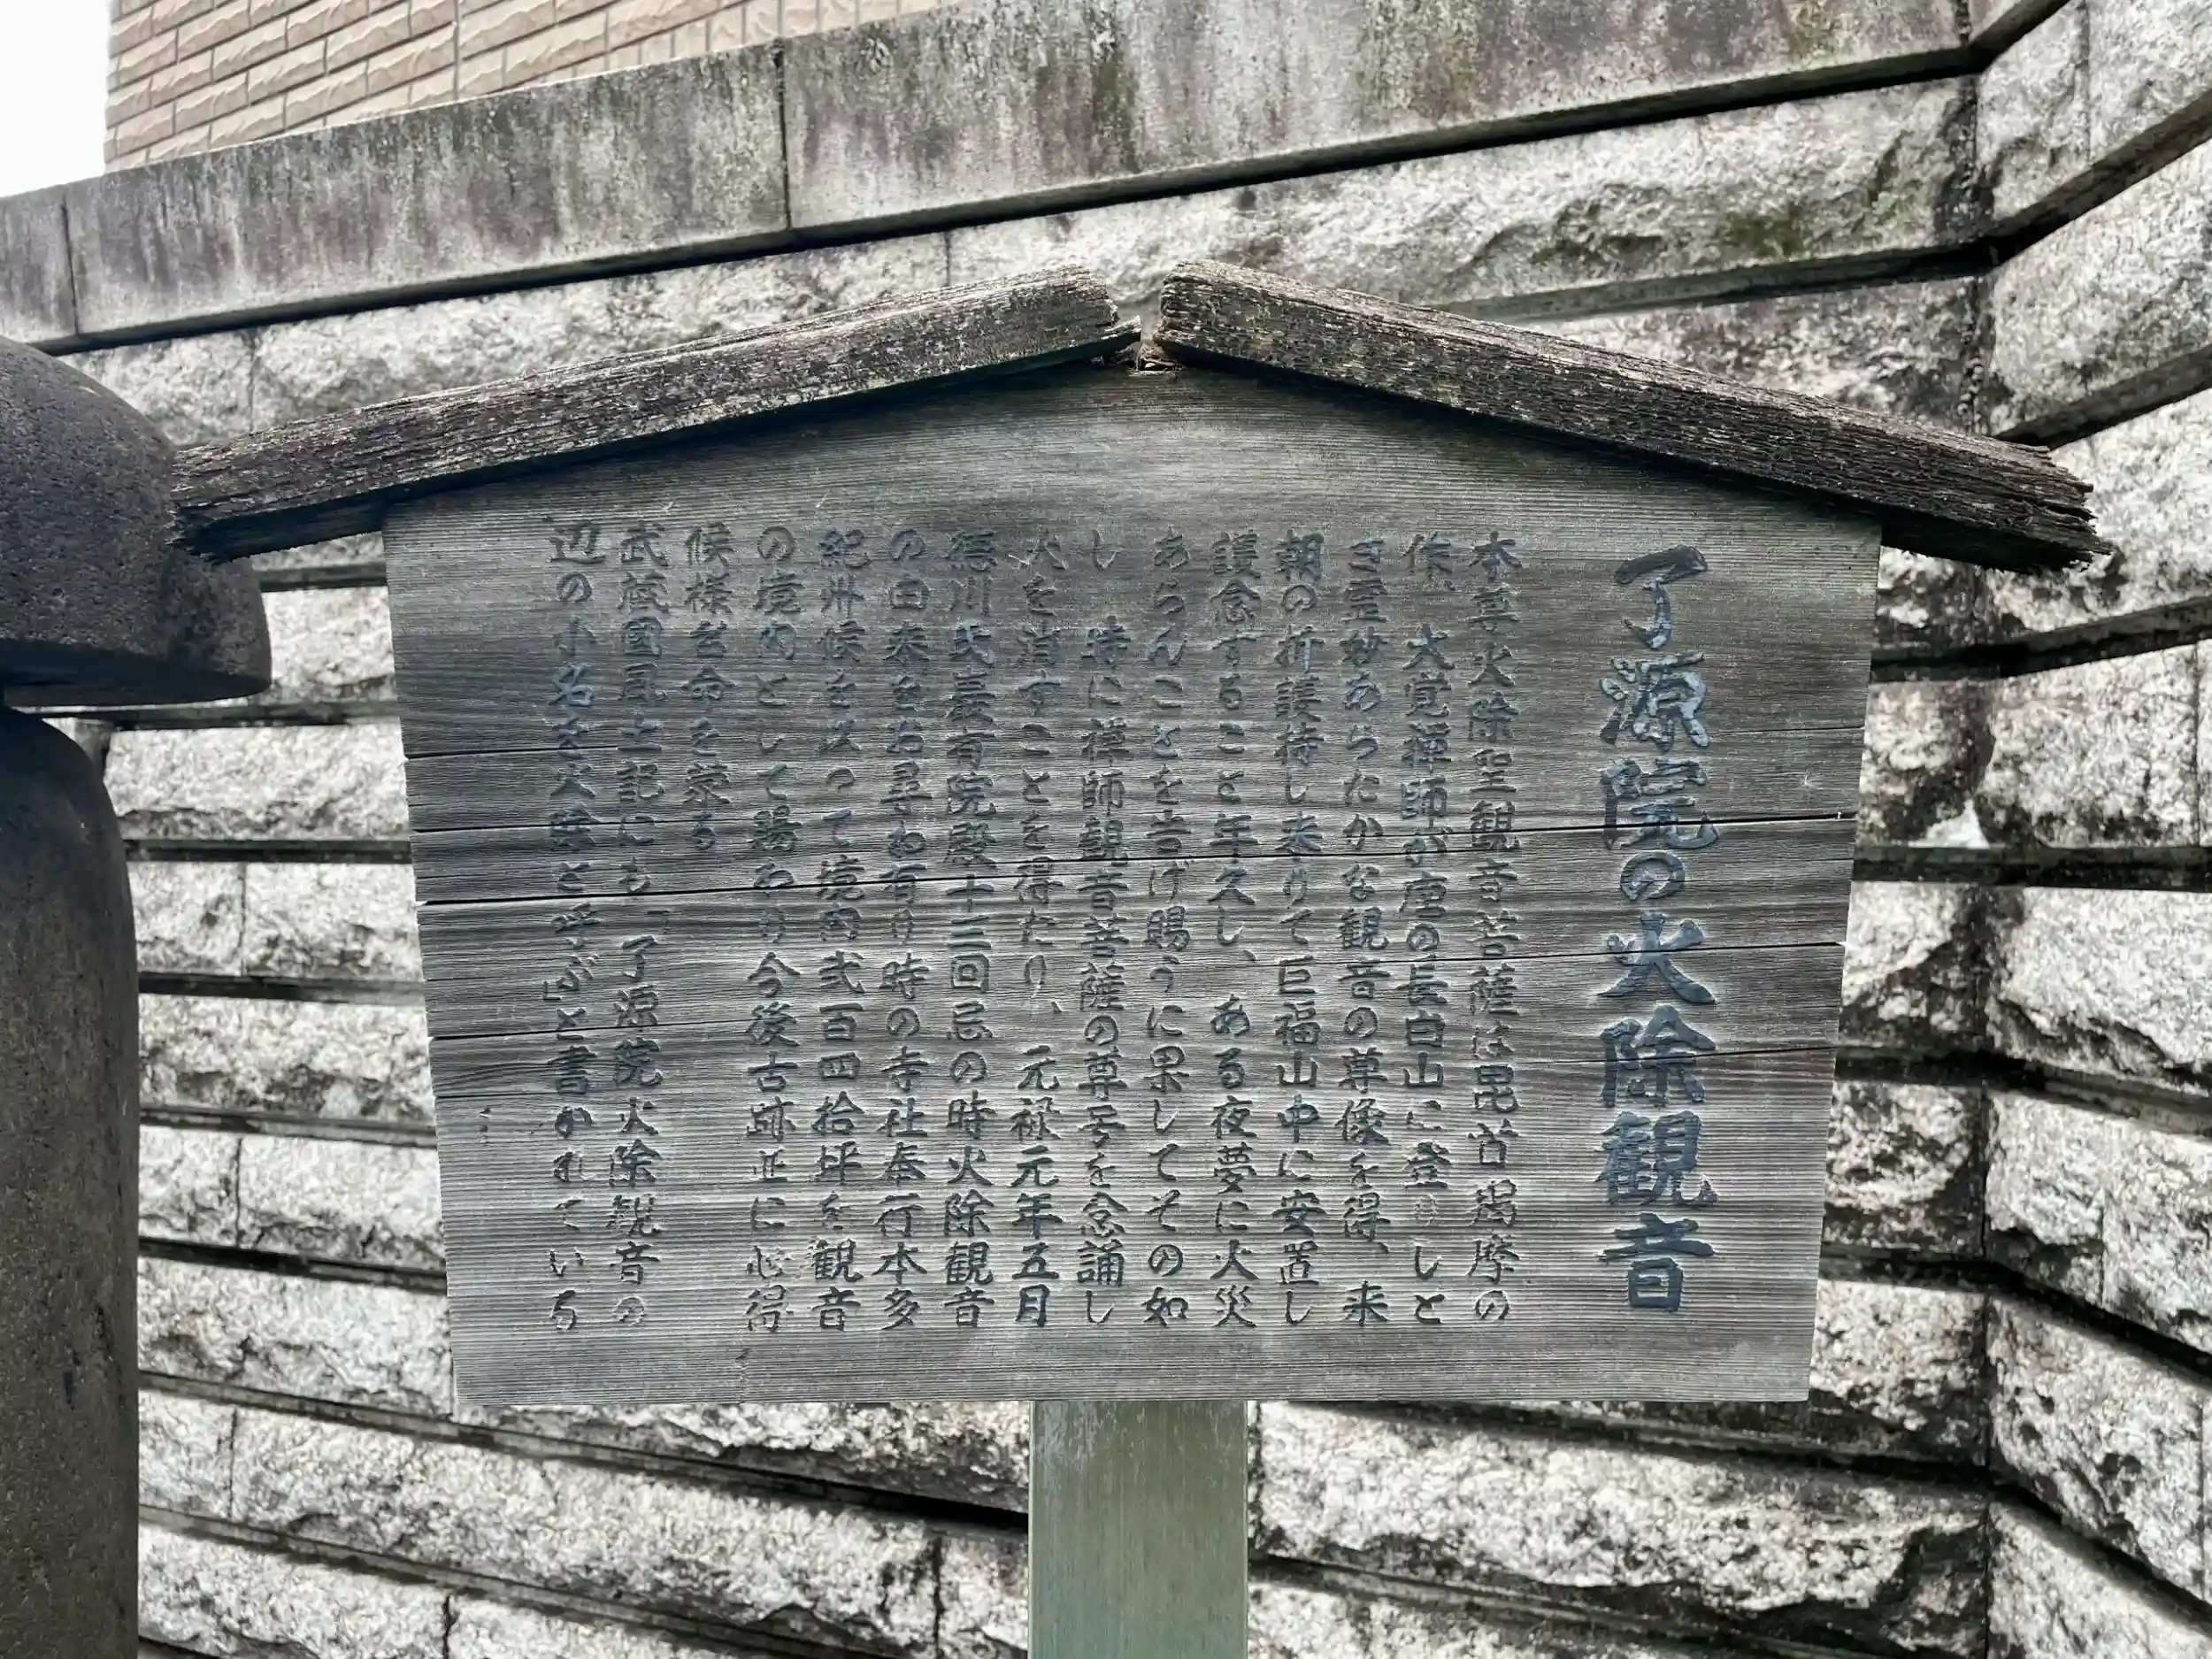 了源院の火除観音
本尊火除聖観音菩薩は毘首羯摩の
作、大覚禅師が唐の長白山に登りしと
き霊妙あらたかな観音の尊像を得、来
朝の折護持し来りて巨福山中に安置し
護念すること年久し、ある夜夢に火災
あらんことを告げ賜うに果してその如
し 時に禅師観音菩薩の尊号を念誦し
火を消すことを得たり、元禄元年五月
徳川氏厳有院殿十三回忌の時火除観音
の由来を若尋ね有り時の寺社奉行本多
紀州候を以って境内弐百四拾坪を観音
の境内として賜わり今後古跡並に心得
候様台命を蒙る
武蔵國風土記にも「了源院火除観音の
辺の小名を火除と呼ぶ」と書かれている